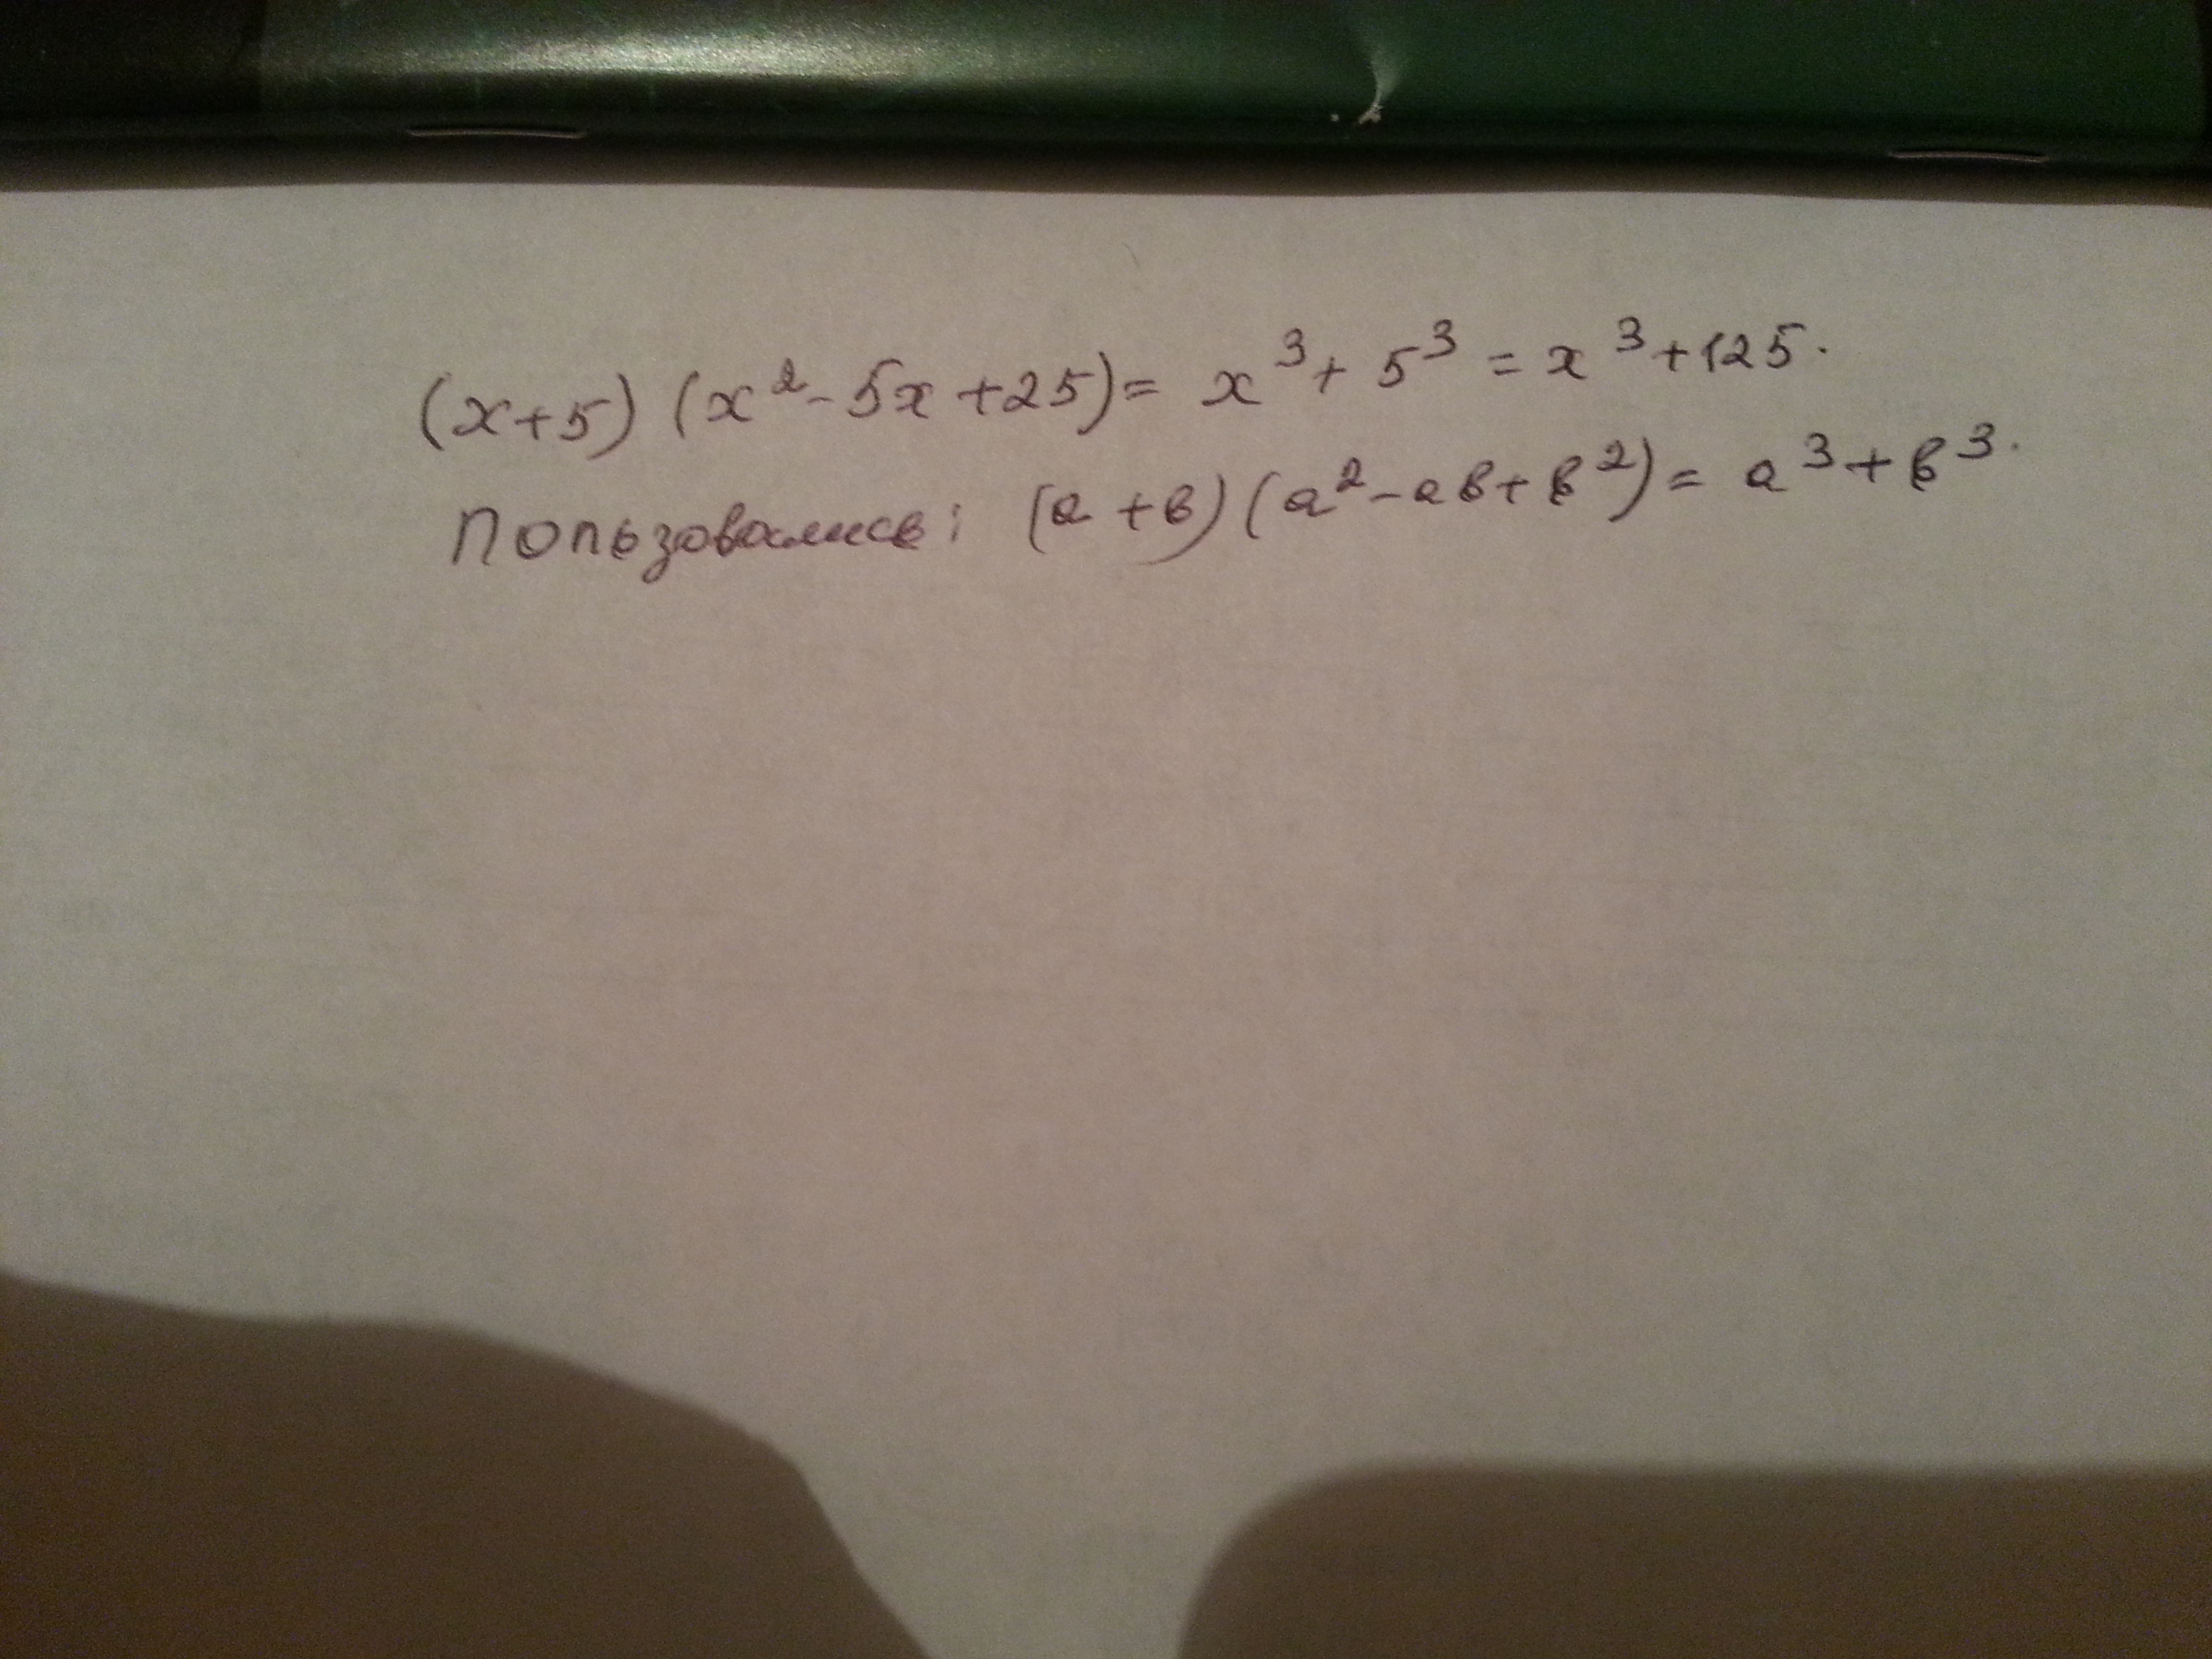 (x+5)(x²-5x+25)= x³+5³=x³+125.
Пользовались: (а+в)(а²-ав+в²)= а³+в³.